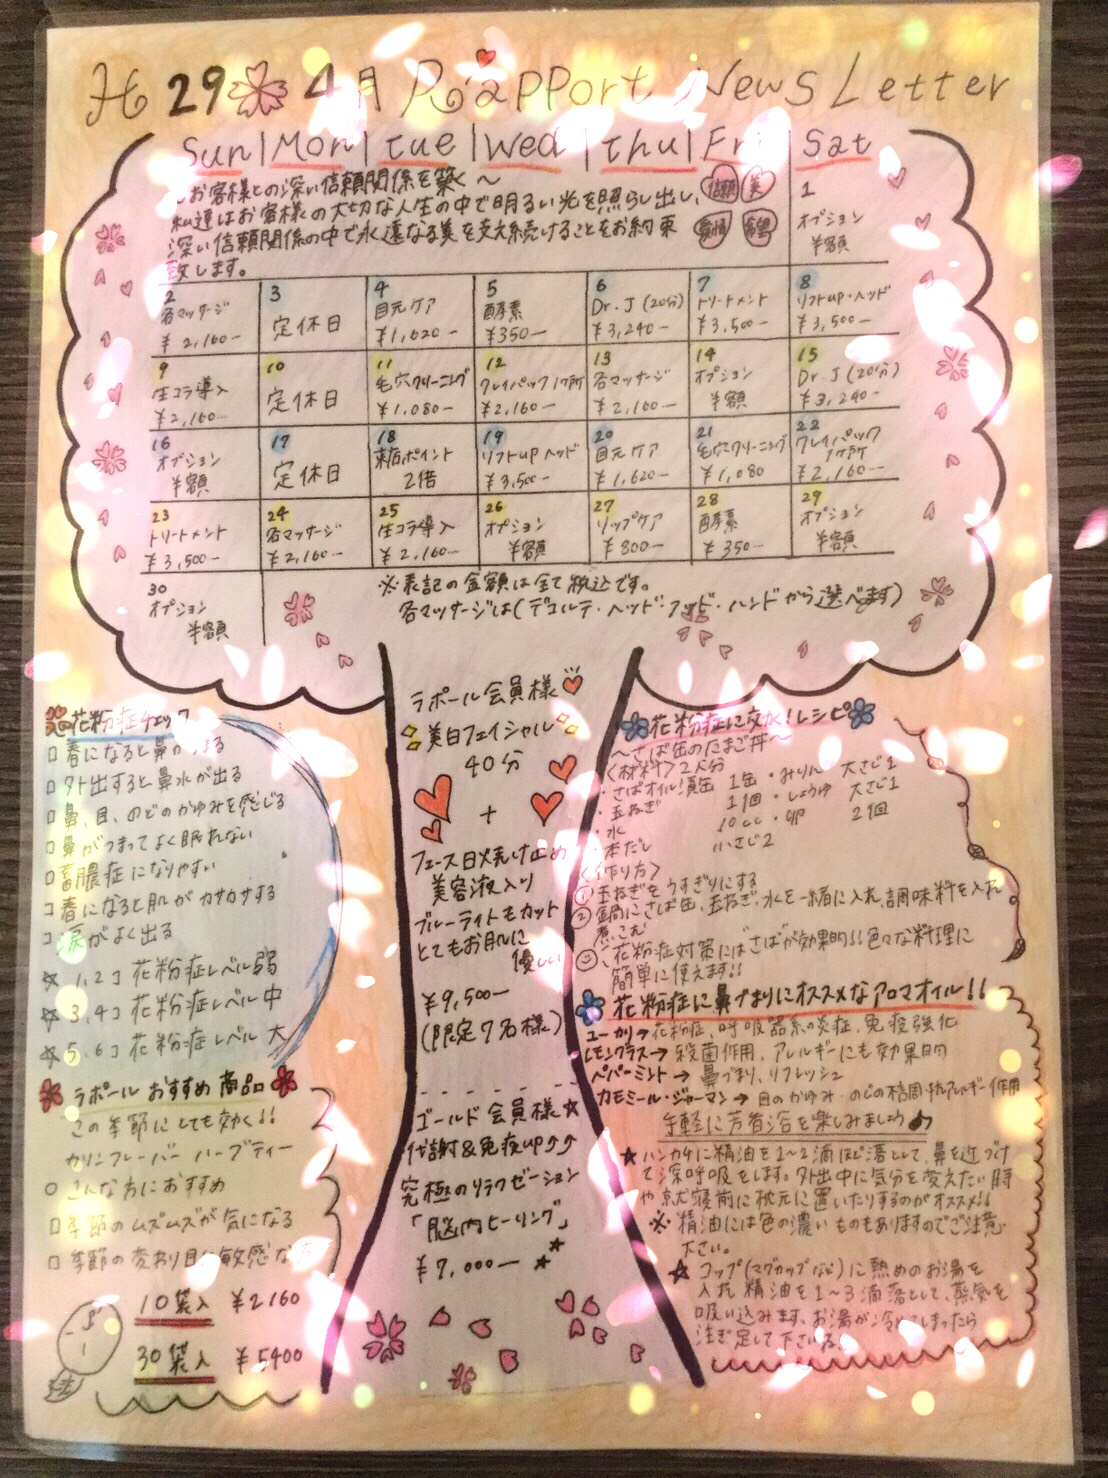 H29 4月 Rapport News Letter
Sun Mon tue Wed thu Fri Sat
～お客様との深い信頼関係を築く～
私達はお客様の大切な人生の中で明るい光を照らし出し、
深い信頼関係の中で永遠なる美を支え続けることをお約束
致します。
信頼 美
愛情 希望
1
オプション
半額
2
各マッサージ
¥2,160-
3
定休日
4
目元ケア
¥1,620-
5
酵素
¥350-
6
Dr.J(20分)
¥3,240-
7
トリートメント
¥3,500-
8
リフトup・ヘッド
¥3,500-
9
生コラ導入
¥2,160-
10
定休日
11
毛穴クリーニング
¥1,080-
12
クレイパック1ヶ所
¥2,160-
13
各マッサージ
¥2,160-
14
オプション
半額
15
Dr.J(20分)
¥3,240-
16
オプション
半額
17
定休日
18
来店ポイント
2倍
19
リフトupヘッド
¥3,500-
20
目元ケア
¥1,620-
21
毛穴クリーニング
¥1,080
22
クレイパック
1ヶ所
¥2,160-
23
トリートメント
¥3,500-
24
各マッサージ
¥2,160-
25
生コラ導入
¥2,160-
26
オプション
半額
27
リップケア
¥800-
28
酵素
¥350-
29
オプション
半額
30
オプション
半額
※表記の金額は全て税込です。
各マッサージは(デコルテ・ヘッド・フッド・ハンドから選べます)
花粉症チェック
□春になると鼻がつまる
□外出すると鼻水が出る
□鼻、目、のどのかゆみを感じる
□鼻がつまってよく眠れない
□蓄膿症になりやすい
□春になると肌がカサカサする
□涙がよく出る
☆1,2コ 花粉症レベル弱
☆3,4コ 花粉症レベル中
☆5,6コ 花粉症レベル大
ラポールおすすめ商品
この季節にとても効く!!
カリンフレーバー ハーブティー
○こんな方におすすめ
□季節のムズムズが気になる
□季節の変わり目に敏感な方
10袋入 ¥2160
30袋入 ¥5400
ラポール会員様
美白フェイシャル
40分
+
フェース日焼け止め
美容液入り
ブルーライトもカット
とてもお肌に
優しい
¥9,500-
(限定7名様)
ゴールド会員様★
代謝&免疫up↑↑
究極のリラクゼーション
「脳内ヒーリング」
¥7,000-
花粉症に効く!レシピ
～さば缶のたまご丼～
<材料>2人分
・さばオイル漬缶 1缶 ・みりん 大さじ1
・玉ねぎ 1個 ・しょうゆ 大さじ1
・水 10cc ・卵 2個
・本だし 小さじ2
<作り方>
①玉ねぎをうすぎりにする
②鍋にさば缶、玉ねぎ、水を一緒に入れ、調味料を入れ
煮こむ
花粉症対策にはさばが効果的!!色々な料理に
簡単に使えます!!
花粉症に鼻づまりにオススメなアロマオイル!!
ユーカリ→花粉症、呼吸器系の炎症、免疫強化
レモングラス→殺菌作用、アレルギーにも効果的
ペパーミント→鼻づまり、リフレッシュ
カモミール・ジャーマン→目のかゆみ・のどの
手軽に芳香浴を楽しみましょう♪
★ハンカチに精油を1～2滴ほど落として、鼻を近づけ
て深呼吸をします。外出中に気分を変えたい時
や就寝前に枕元に置いたりするのがオススメ!!
※精油には色の濃いものもありますのでご注意
下さい。
★コップ(マグカップなど)に熱めのお湯を
入れ精油を1～3滴落として、蒸気を
吸い込みます。お湯が冷めてしまったら
注ぎ足して下さい。